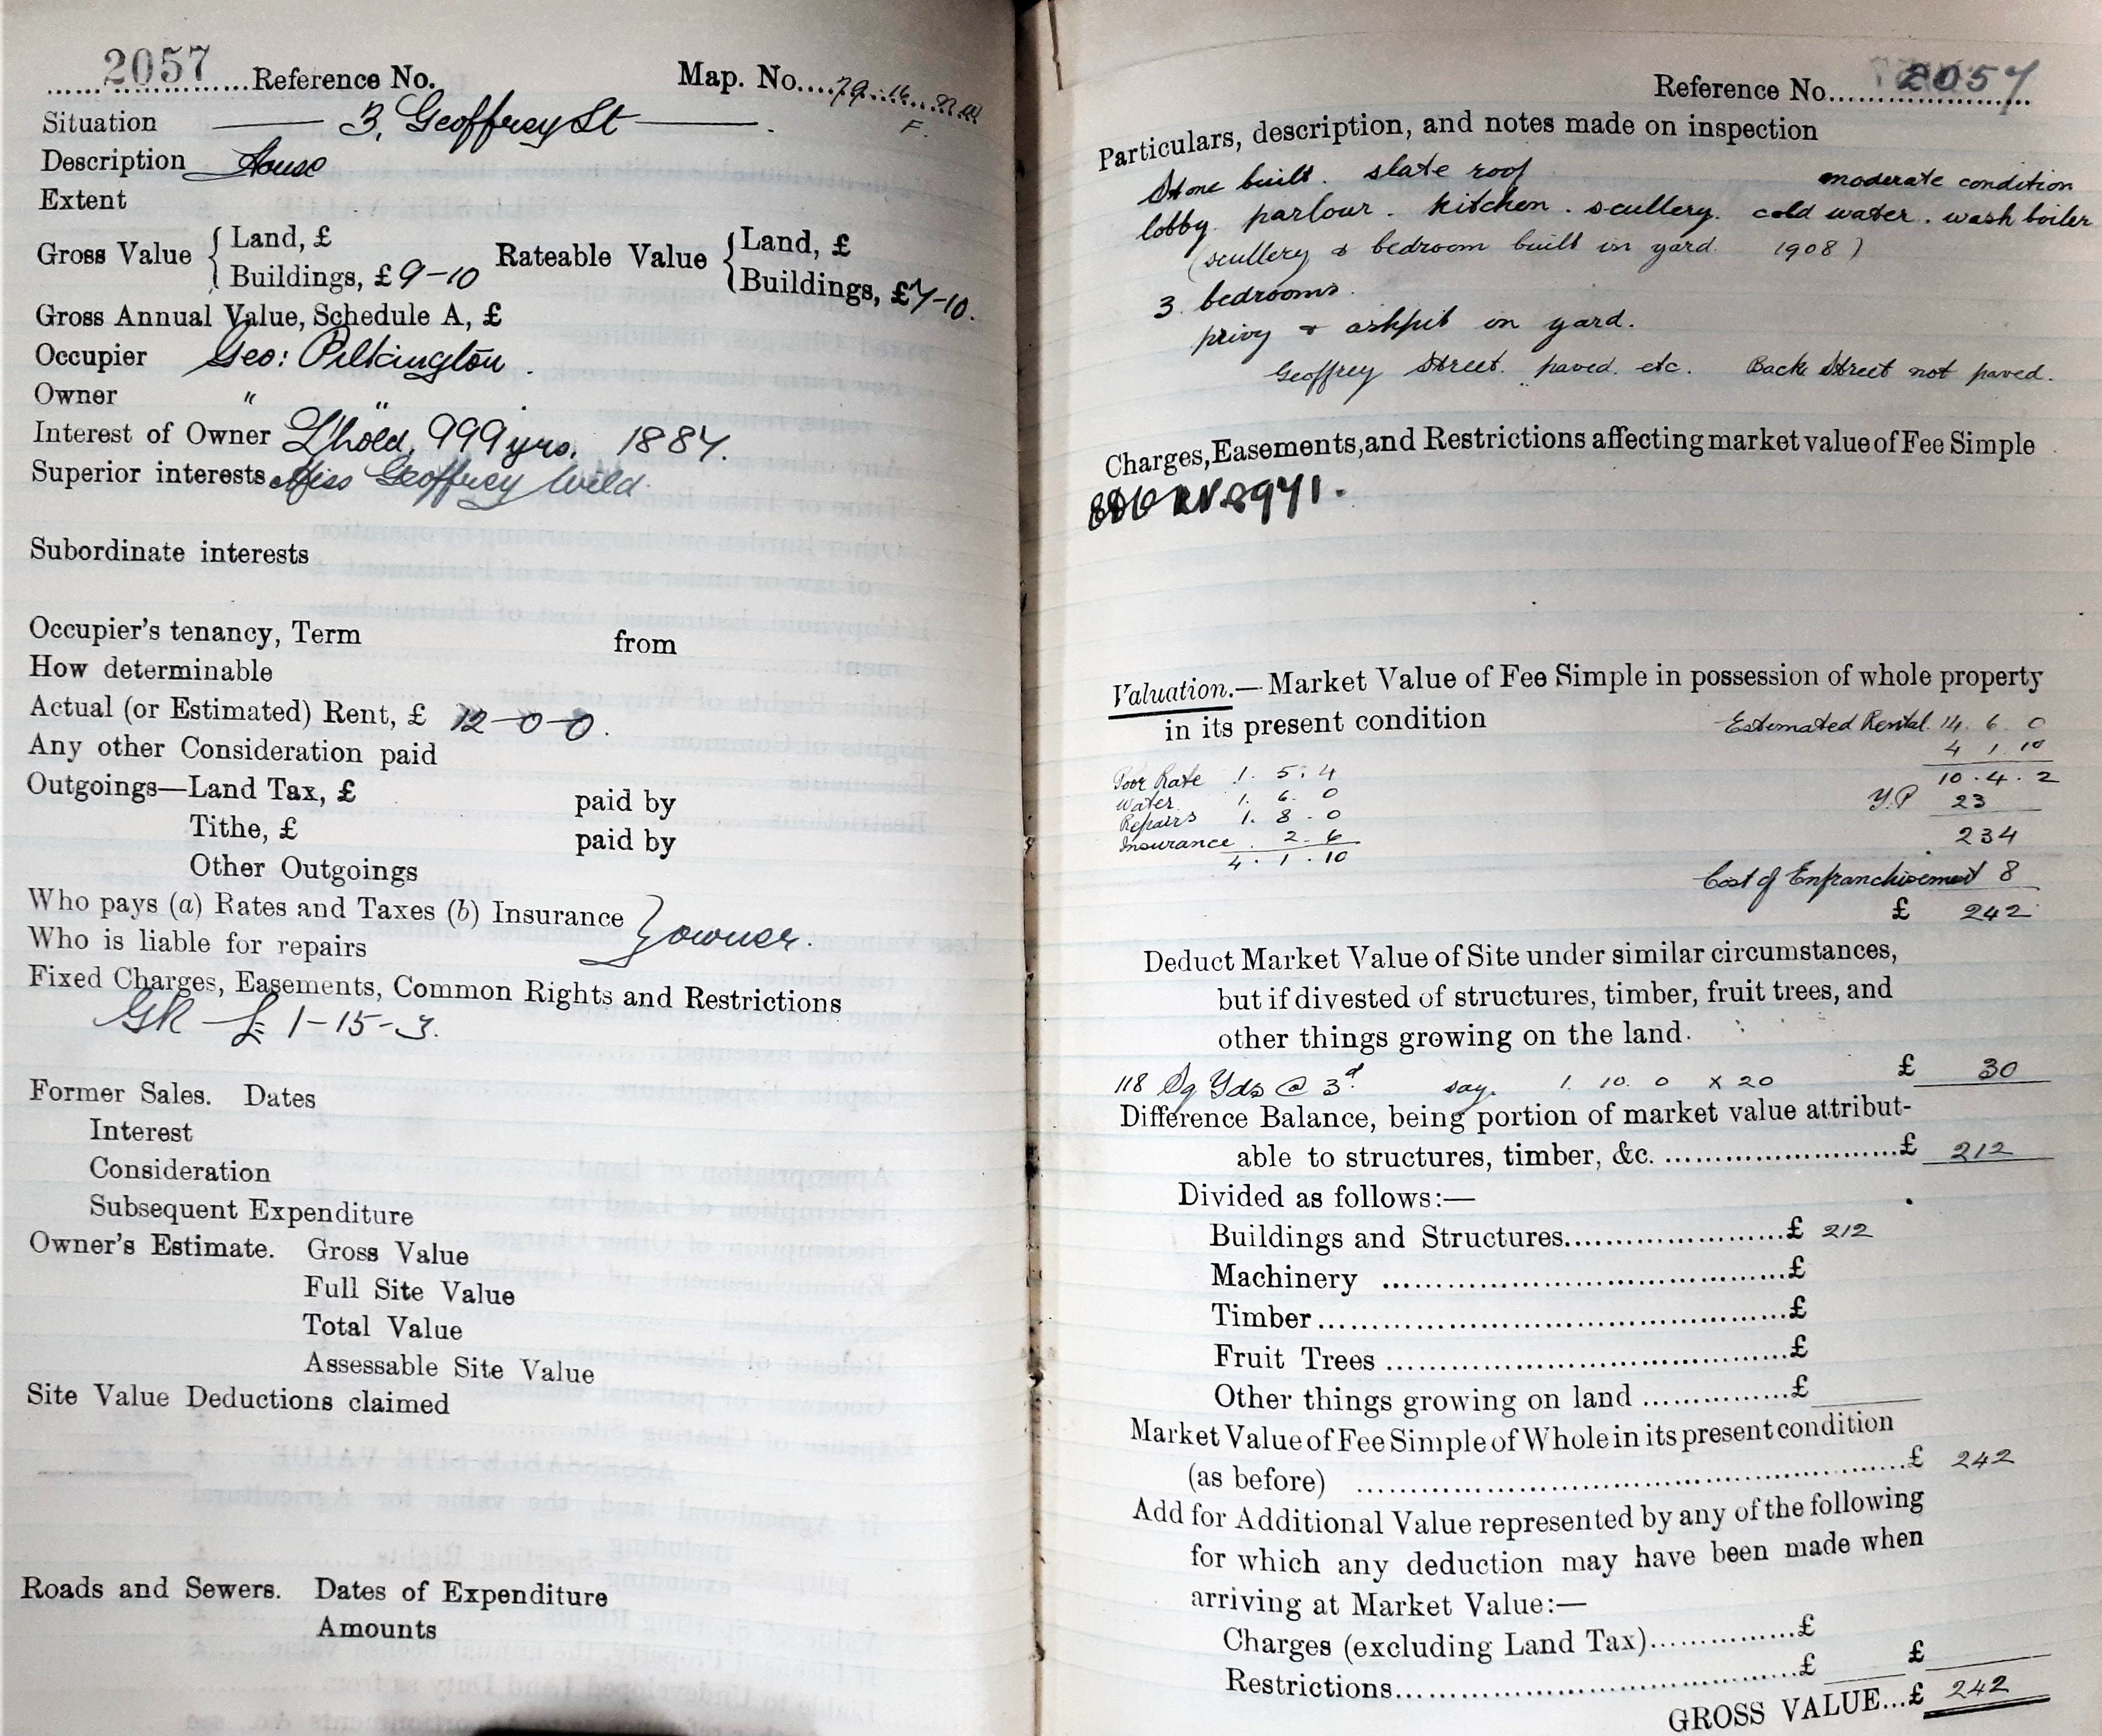 2057 Reference No. Map. No. 79.16.
F.
Situation 3, Geoffrey St
Description House
Extent
Gross Value { Land, £ Rateable Value { Land, £
Buildings, £ 9-10 Buildings, £ 7-10.
Gross Annual Value, Schedule A, £
Occupier Geo: Pilkington.
Owner " "
Interest of Owner L'hold, 999 yrs. 1887.
Superior interests Miss Geoffrey Wild.
Subordinate interests
Occupier's tenancy, Term from
How determinable
Actual (or Estimated) Rent, £ 12-0-0.
Any other Consideration paid
Outgoings—Land Tax, £ paid by
Tithe, £ paid by
Other Outgoings
Who pays (a) Rates and Taxes (b) Insurance } owner.
Who is liable for repairs
Fixed Charges, Easements, Common Rights and Restrictions
GR £1-15-3.
Former Sales. Dates
Interest
Consideration
Subsequent Expenditure
Owner's Estimate. Gross Value
Full Site Value
Total Value
Assessable Site Value
Site Value Deductions claimed
Roads and Sewers. Dates of Expenditure
Amounts
Reference No. 2057
Particulars, description, and notes made on inspection
Stone built. slate roof moderate condition
lobby. parlour. kitchen. scullery. cold water. wash boiler
(scullery & bedroom built in yard. 1908)
3. bedrooms.
privy & ashpit in yard.
Geoffrey Street. paved. etc. Back Street not paved.
Charges, Easements, and Restrictions affecting market value of Fee Simple
Valuation.—Market Value of Fee Simple in possession of whole property
in its present condition
Estimated Rental. 14. 6. 0
4 1. 10
Poor Rate 1. 5. 4 10. 4. 2
Water 1. 6. 0 Y.P 23
Repairs 1. 8. 0
Insurance. 2. 6 234
4. 1. 10
Cost of Enfranchisement 8
£ 242
Deduct Market Value of Site under similar circumstances,
but if divested of structures, timber, fruit trees, and
other things growing on the land.
118 Sq Yds @ 3d. say. 1. 10. 0 x 20 £ 30
Difference Balance, being portion of market value attribut-
able to structures, timber, &c. £ 212
Divided as follows:—
Buildings and Structures £ 212
Machinery £
Timber £
Fruit Trees £
Other things growing on land £
Market Value of Fee Simple of Whole in its present condition
(as before) £ 242
Add for Additional Value represented by any of the following
for which any deduction may have been made when
arriving at Market Value:—
Charges (excluding Land Tax) £
Restrictions £ £
GROSS VALUE...£ 242